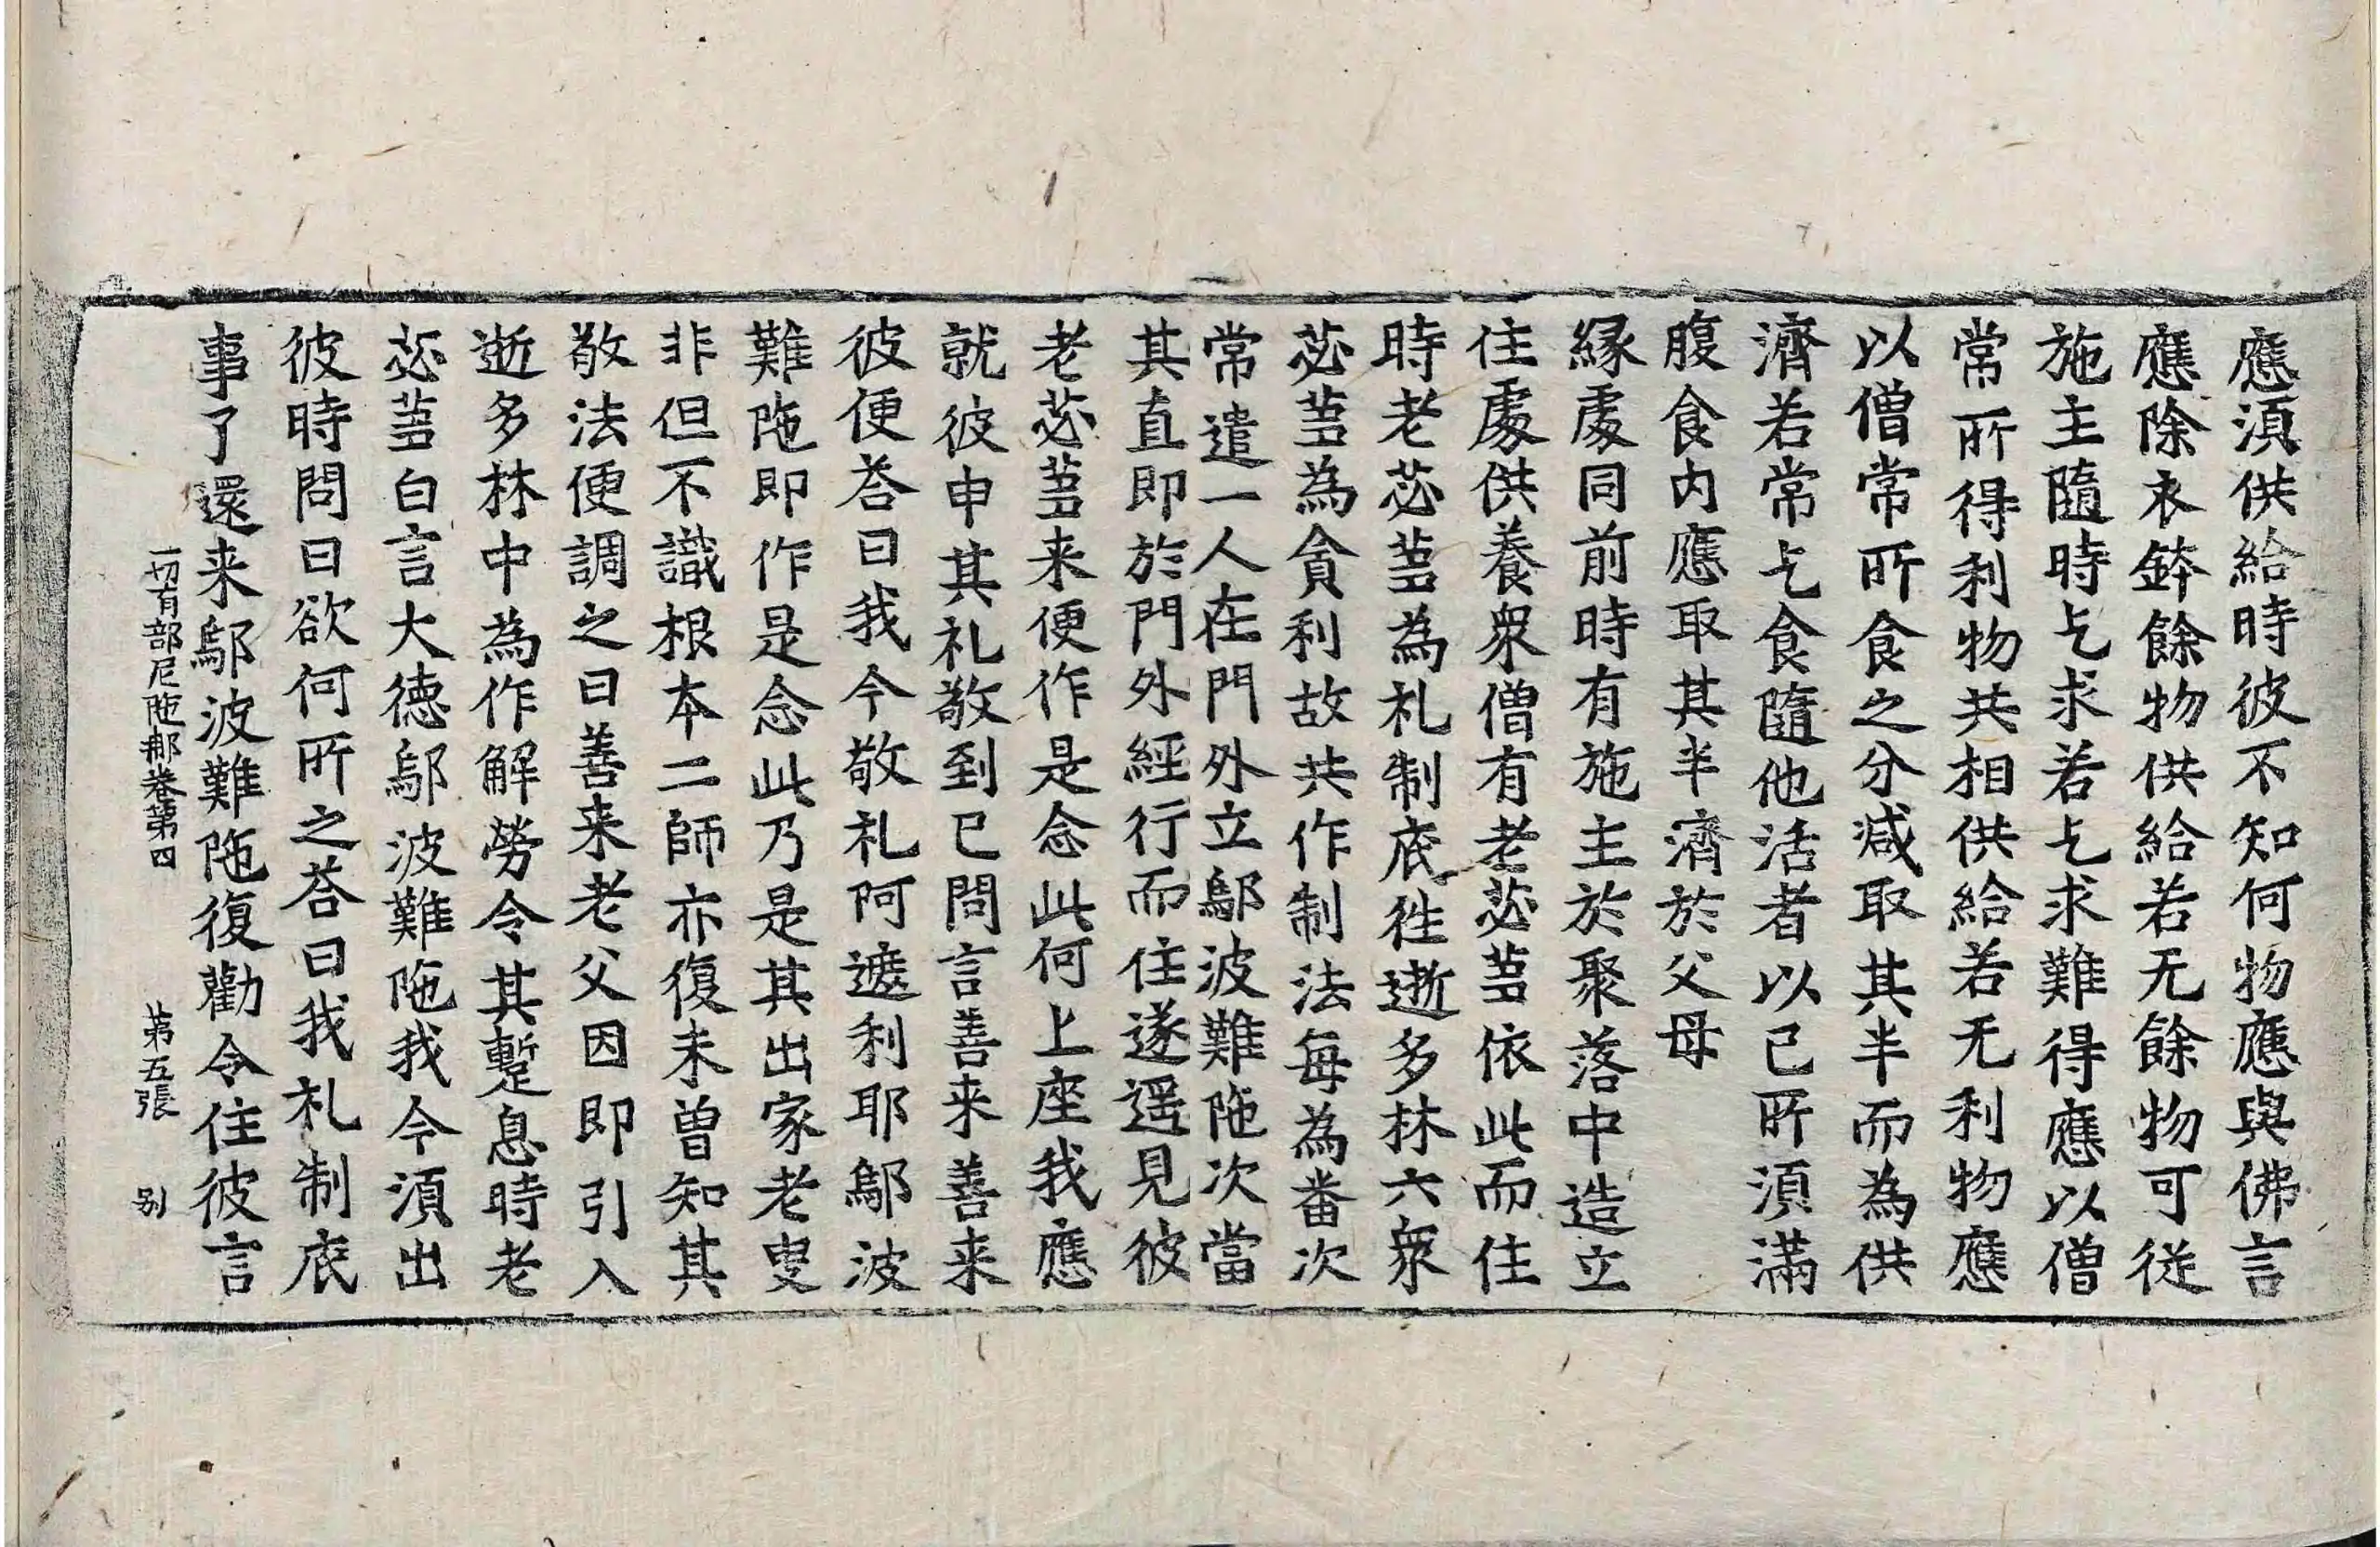 應湏供給時彼不知何物應與佛言
應除衣鉢餘物供給若无餘物可従
施主隨時乞求若乞求難得應以僧
常所得利物共相供給若无利物應
以僧常所食之分减取其半而為供
濟若常乞食隨他活者以已所湏滿
腹食内應取其半濟於父母
縁處同前時有施主於聚落中造立
住處供養衆僧有老苾蒭依此而住
時老苾蒭為礼制底徃逝多林六衆
苾蒭為貪利故共作制法每為番次
常遣一人在門外立鄔波難陁次當
其直即於門外經行而住遂遥見彼
老苾蒭来便作是念此何上座我應
就彼申其礼敬到已問言善来善来
彼便荅曰我今敬礼阿遮利耶鄔波
難陁即作是念此乃是其出家老叟
非但不識根本二師亦復未曾知其
敬法便調之曰善来老父因即引入
逝多林中為作解勞令其蹔息時老
苾蒭白言大德鄔波難陁我今湏出
彼時問曰欲何所之荅曰我礼制底
事了還来鄔波難陁復勸令住彼言
一切有部尼陁那卷第四 第五張 别